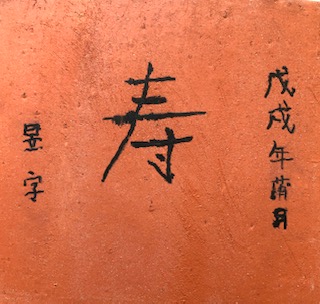 戊戌年蒲月
寿
字